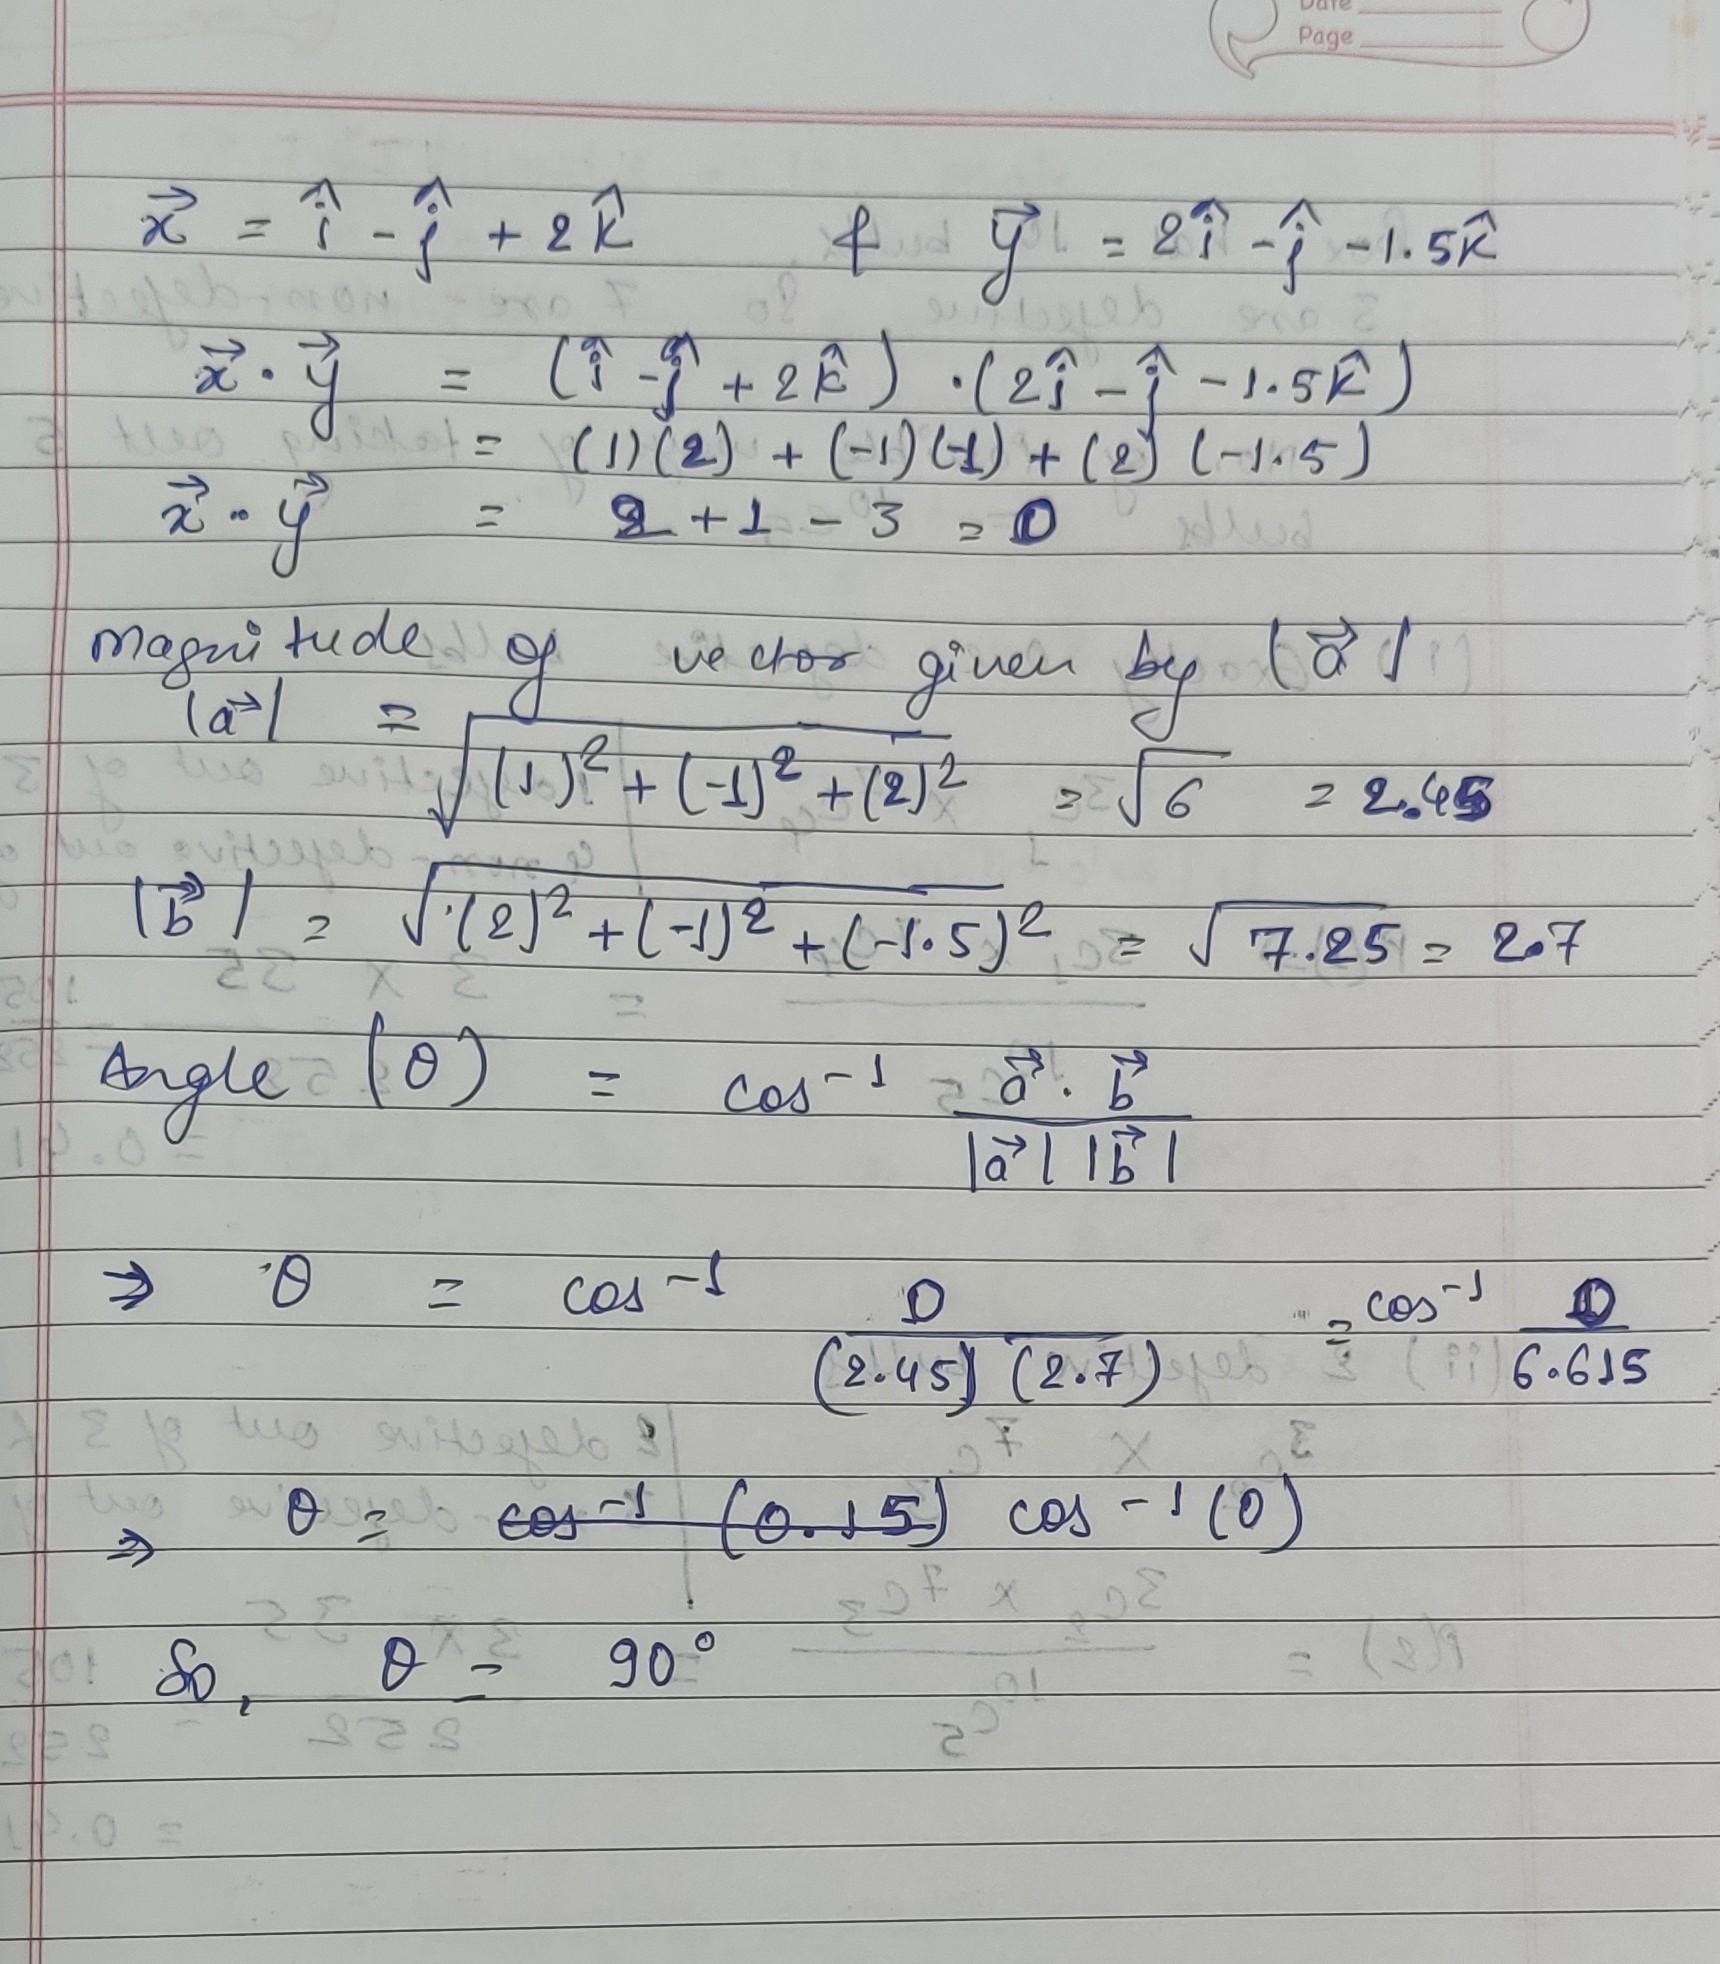 Date
Page
x⃗ = î - ĵ + 2k̂ & y⃗ = 2î - ĵ - 1.5k̂
x⃗ · y⃗ = (î - ĵ + 2k̂) · (2î - ĵ - 1.5k̂)
= (1)(2) + (-1)(-1) + (2)(-1.5)
x⃗ · y⃗ = 2 + 1 - 3 = 0
Magnitude of vector given by |a⃗|
|a⃗| = √(1)² + (-1)² + (2)² = √6 = 2.45
|b⃗| = √(2)² + (-1)² + (-1.5)² = √7.25 = 2.7
Angle (θ) = cos⁻¹ a⃗ · b⃗ / |a⃗| |b⃗|
⇒ θ = cos⁻¹ 0 / (2.45) (2.7) = cos⁻¹ 0 / 6.615
⇒ θ = cos⁻¹ (0.15) cos⁻¹ (0)
So, θ = 90°